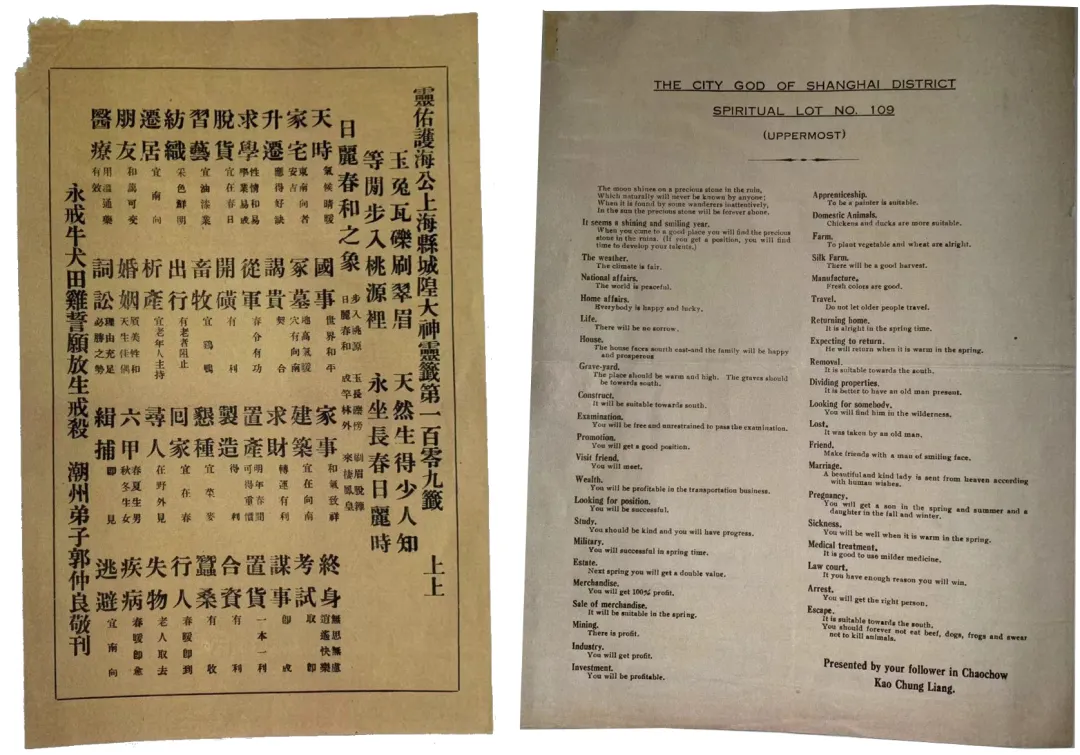 靈佑護海公上海縣城隍大神靈籤第一百零九籤 上上
玉兔瓦礫刷翠眉 天然生得少人知
等閒步入桃源裡 永坐長春日麗時
日麗春和之象 步入桃源 日麗春和 成竿林外 來棲鳳皇
天時 氣候晴暖 國事 世界和平 家事 和氣致祥 終身 無思無慮 逍遙快樂
家宅 東南向者 安吉 冢墓 地高氣暖 穴有向南 建築 宜在向南 考試 取即
升遷 應得好缺 謁貴 契合 求財 轉運有利 謀事 即成
求學 性情和易 學業易成 從軍 春分有功 置產 明年春間 可得重價 置貨 一本一利
脫貨 宜在春日 開礦 有利 製造 得利 合資 有利
習藝 宜油漆業 畜牧 宜鷄鴨 懇種 宜菜麥 蠶桑 有收
紡織 采色鮮明 出行 有老者阻止 囘家 宜在春 行人 春暖即到
遷居 宜南向 析產 宜老年人主持 尋人 在野外見 失物 老人取去
朋友 和藹可交 婚姻 質美性和 天生佳偶 六甲 春夏生男 秋冬生女 疾病 春暖即愈
醫療 用溫通藥 有效 詞訟 理由充足 必勝之勢 緝捕 即見 逃避 宜南向
永戒牛犬田雞誓願放生戒殺 潮州弟子郭仲良敬刊
THE CITY GOD OF SHANGHAI DISTRICT
SPIRITUAL LOT NO. 109
(UPPERMOST)
The moon shines on a precious stone in the ruin,
Which naturally will never be known by anyone;
When it is found by some wanderers inattentively,
In the sun the precious stone will be forever shone.
It seems a shining and smiling year.
When you come to a good place you will find the precious
stone in the ruins. (If you get a position, you will find
time to develop your talents.)
The weather.
The climate is fair.
National affairs.
The world is peaceful.
Home affairs.
Everybody is happy and lucky.
Life.
There will be no sorrow.
House.
The house faces south east-and the family will be happy
and prosperous
Grave-yard.
The place should be warm and high. The graves should
be towards south.
Construct.
It will be suitable towards south.
Examination.
You will be free and unrestrained to pass the examination.
Promotion.
You will get a good position.
Visit friend.
You will meet.
Wealth.
You will be profitable in the transportation business.
Looking for position.
You will be successful.
Study.
You should be kind and you will have progress.
Military.
You will successful in spring time.
Estate.
Next spring you will get a double value.
Merchandise.
You will get 100% profit.
Sale of merchandise.
It will be suitable in the spring.
Mining.
There is profit.
Industry.
You will get profit.
Investment.
You will be profitable.
Apprenticeship.
To be a painter is suitable.
Domestic Animals.
Chickens and ducks are more suitable.
Farm.
To plant vegetable and wheat are alright.
Silk Farm.
There will be a good harvest.
Manufacture.
Fresh colors are good.
Travel.
Do not let older people travel.
Returning home.
It is alright in the spring time.
Expecting to return.
He will return when it is warm in the spring.
Removal.
It is suitable towards the south.
Dividing properties.
It is better to have an old man present.
Looking for somebody.
You will find him in the wilderness.
Lost.
It was taken by an old man.
Friend.
Make friends with a man of smiling face.
Marriage.
A beautiful and kind lady is sent from heaven according
with human wishes.
Pregnancy.
You will get a son in the spring and summer and a
daughter in the fall and winter.
Sickness.
You will be well when it is warm in the spring.
Medical treatment.
It is good to use milder medicine.
Law court.
If you have enough reason you will win.
Arrest.
You will get the right person.
Escape.
It is suitable towards the south.
You should forever not eat beef, dogs, frogs and swear
not to kill animals.
Presented by your follower in Chaochow
Kao Chung Liang.